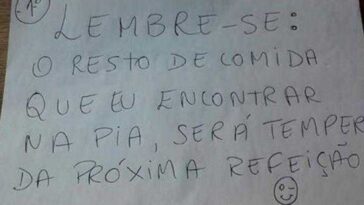 1º
LEMBRE-SE:
O RESTO DE COMIDA
QUE EU ENCONTRAR
NA PIA, SERÁ TEMPER
DA PRÓXIMA REFEIÇÃO